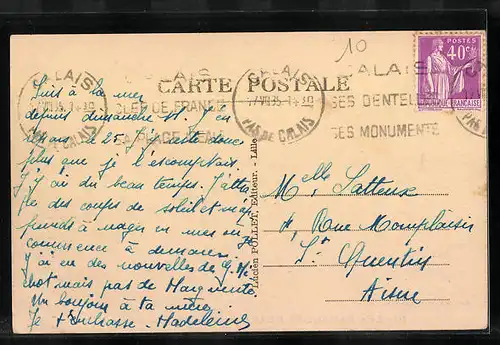 10
CARTE POSTALE
CALAIS
CLEF DE FRANCE
SA PLAGE
CALAIS
7 VII 35
PAS DE CALAIS
CALAIS
SES DENTELLES
SES MONUMENTS
POSTES
40c
Suis à la mer
depuis dimanche
25. J'y reste donc
plus que je l'escomptais.
J'y ai du beau temps. J'attra
pe des coups de soleil et m'ap
prends à nager en mer
commence à
J'ai eu des nouvelles de
mais pas de Marguerite
Un bonjour à ta mère
Je t'embrasse - Madeleine
Lucien POLLET, Editeur. - Lille
Melle Satteux
Rue
St Quentin
Aisne